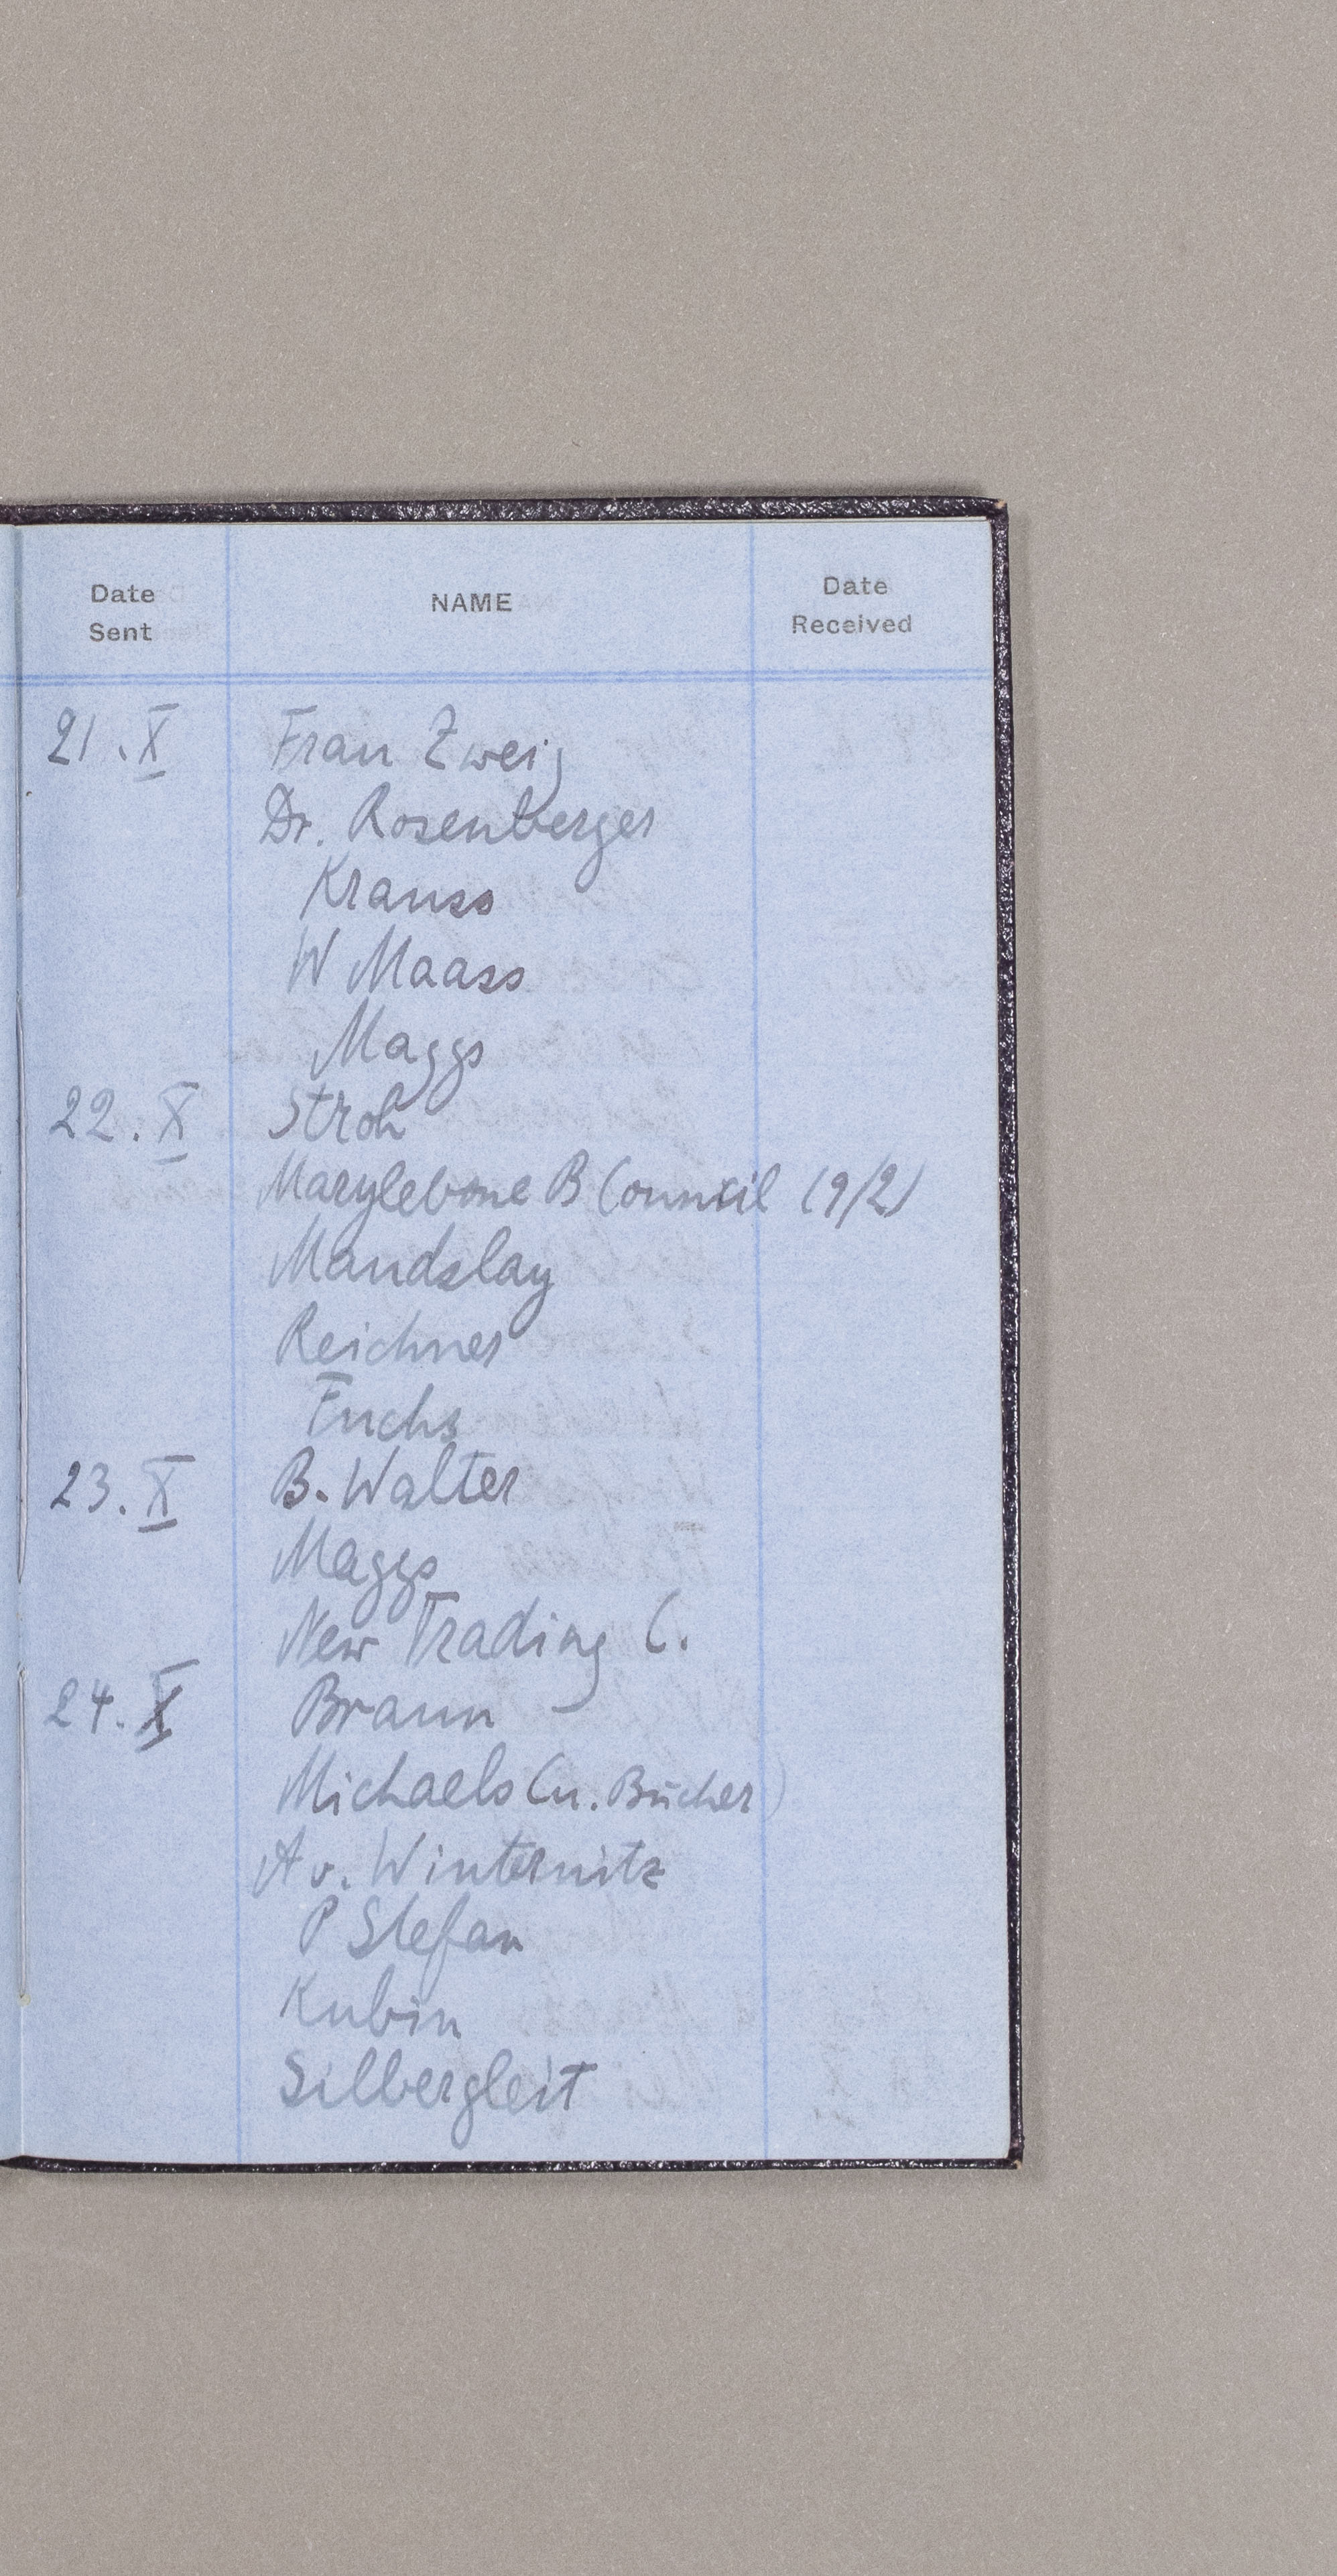 Date Sent NAME Date Received
21.X Frau Zweig
Dr. Rosenberger
Krauss
W Maass
Maggs
22.X Stroh
Marylebone B Council (9/2)
Maudslay
Reichner
Fuchs
23.X B. Walter
Maggs
New Trading C.
24.X Braun
Michaels (u. Bücher)
A v. Winternitz
P Stefan
Kubin
Silbergleit